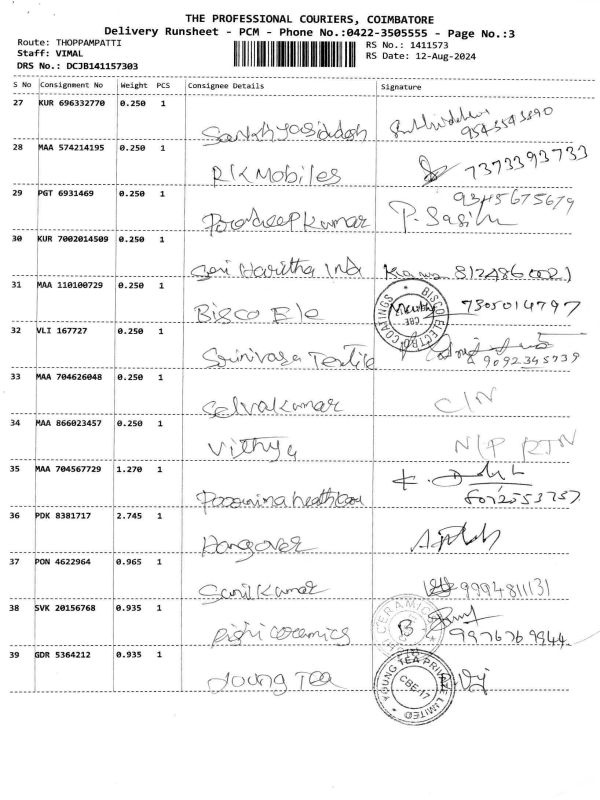 THE PROFESSIONAL COURIERS, COIMBATORE
Delivery Runsheet - PCM - Phone No.:0422-3505555 - Page No.:3
Route: THOPPAMPATTI
Staff: VIMAL
DRS No.: DCJB141157303
RS No.: 1411573
RS Date: 12-Aug-2024
S No Consignment No Weight PCS Consignee Details Signature
27 KUR 696332770 0.250 1
28 MAA 574214195 0.250 1
RK Mobiles 7373393733
29 PGT 6931469 0.250 1
9345675679
Pradeep Kumar P. Sasi
30 KUR 7002014509 0.250 1
Sri Haritha Ind
31 MAA 110100729 0.250 1
Bisco Ele 7305014797
BISCO ELECTRO COATINGS CBE
32 VLI 167727 0.250 1
Srinivasa Textile 9092345739
33 MAA 704626048 0.250 1
Selvakumar C/N
34 MAA 866023457 0.250 1
Vithya N/P RTN
35 MAA 704567729 1.270 1
K.
36 PDK 8381717 2.745 1
Hangover
37 PON 4622964 0.965 1
Sunil Kumar 9994811131
38 SVK 20156768 0.935 1
Rishi ceramics 9976769944
CERAMICS
39 GDR 5364212 0.935 1
Young Tea
YOUNG TEA PRIVATE LIMITED CBE-17